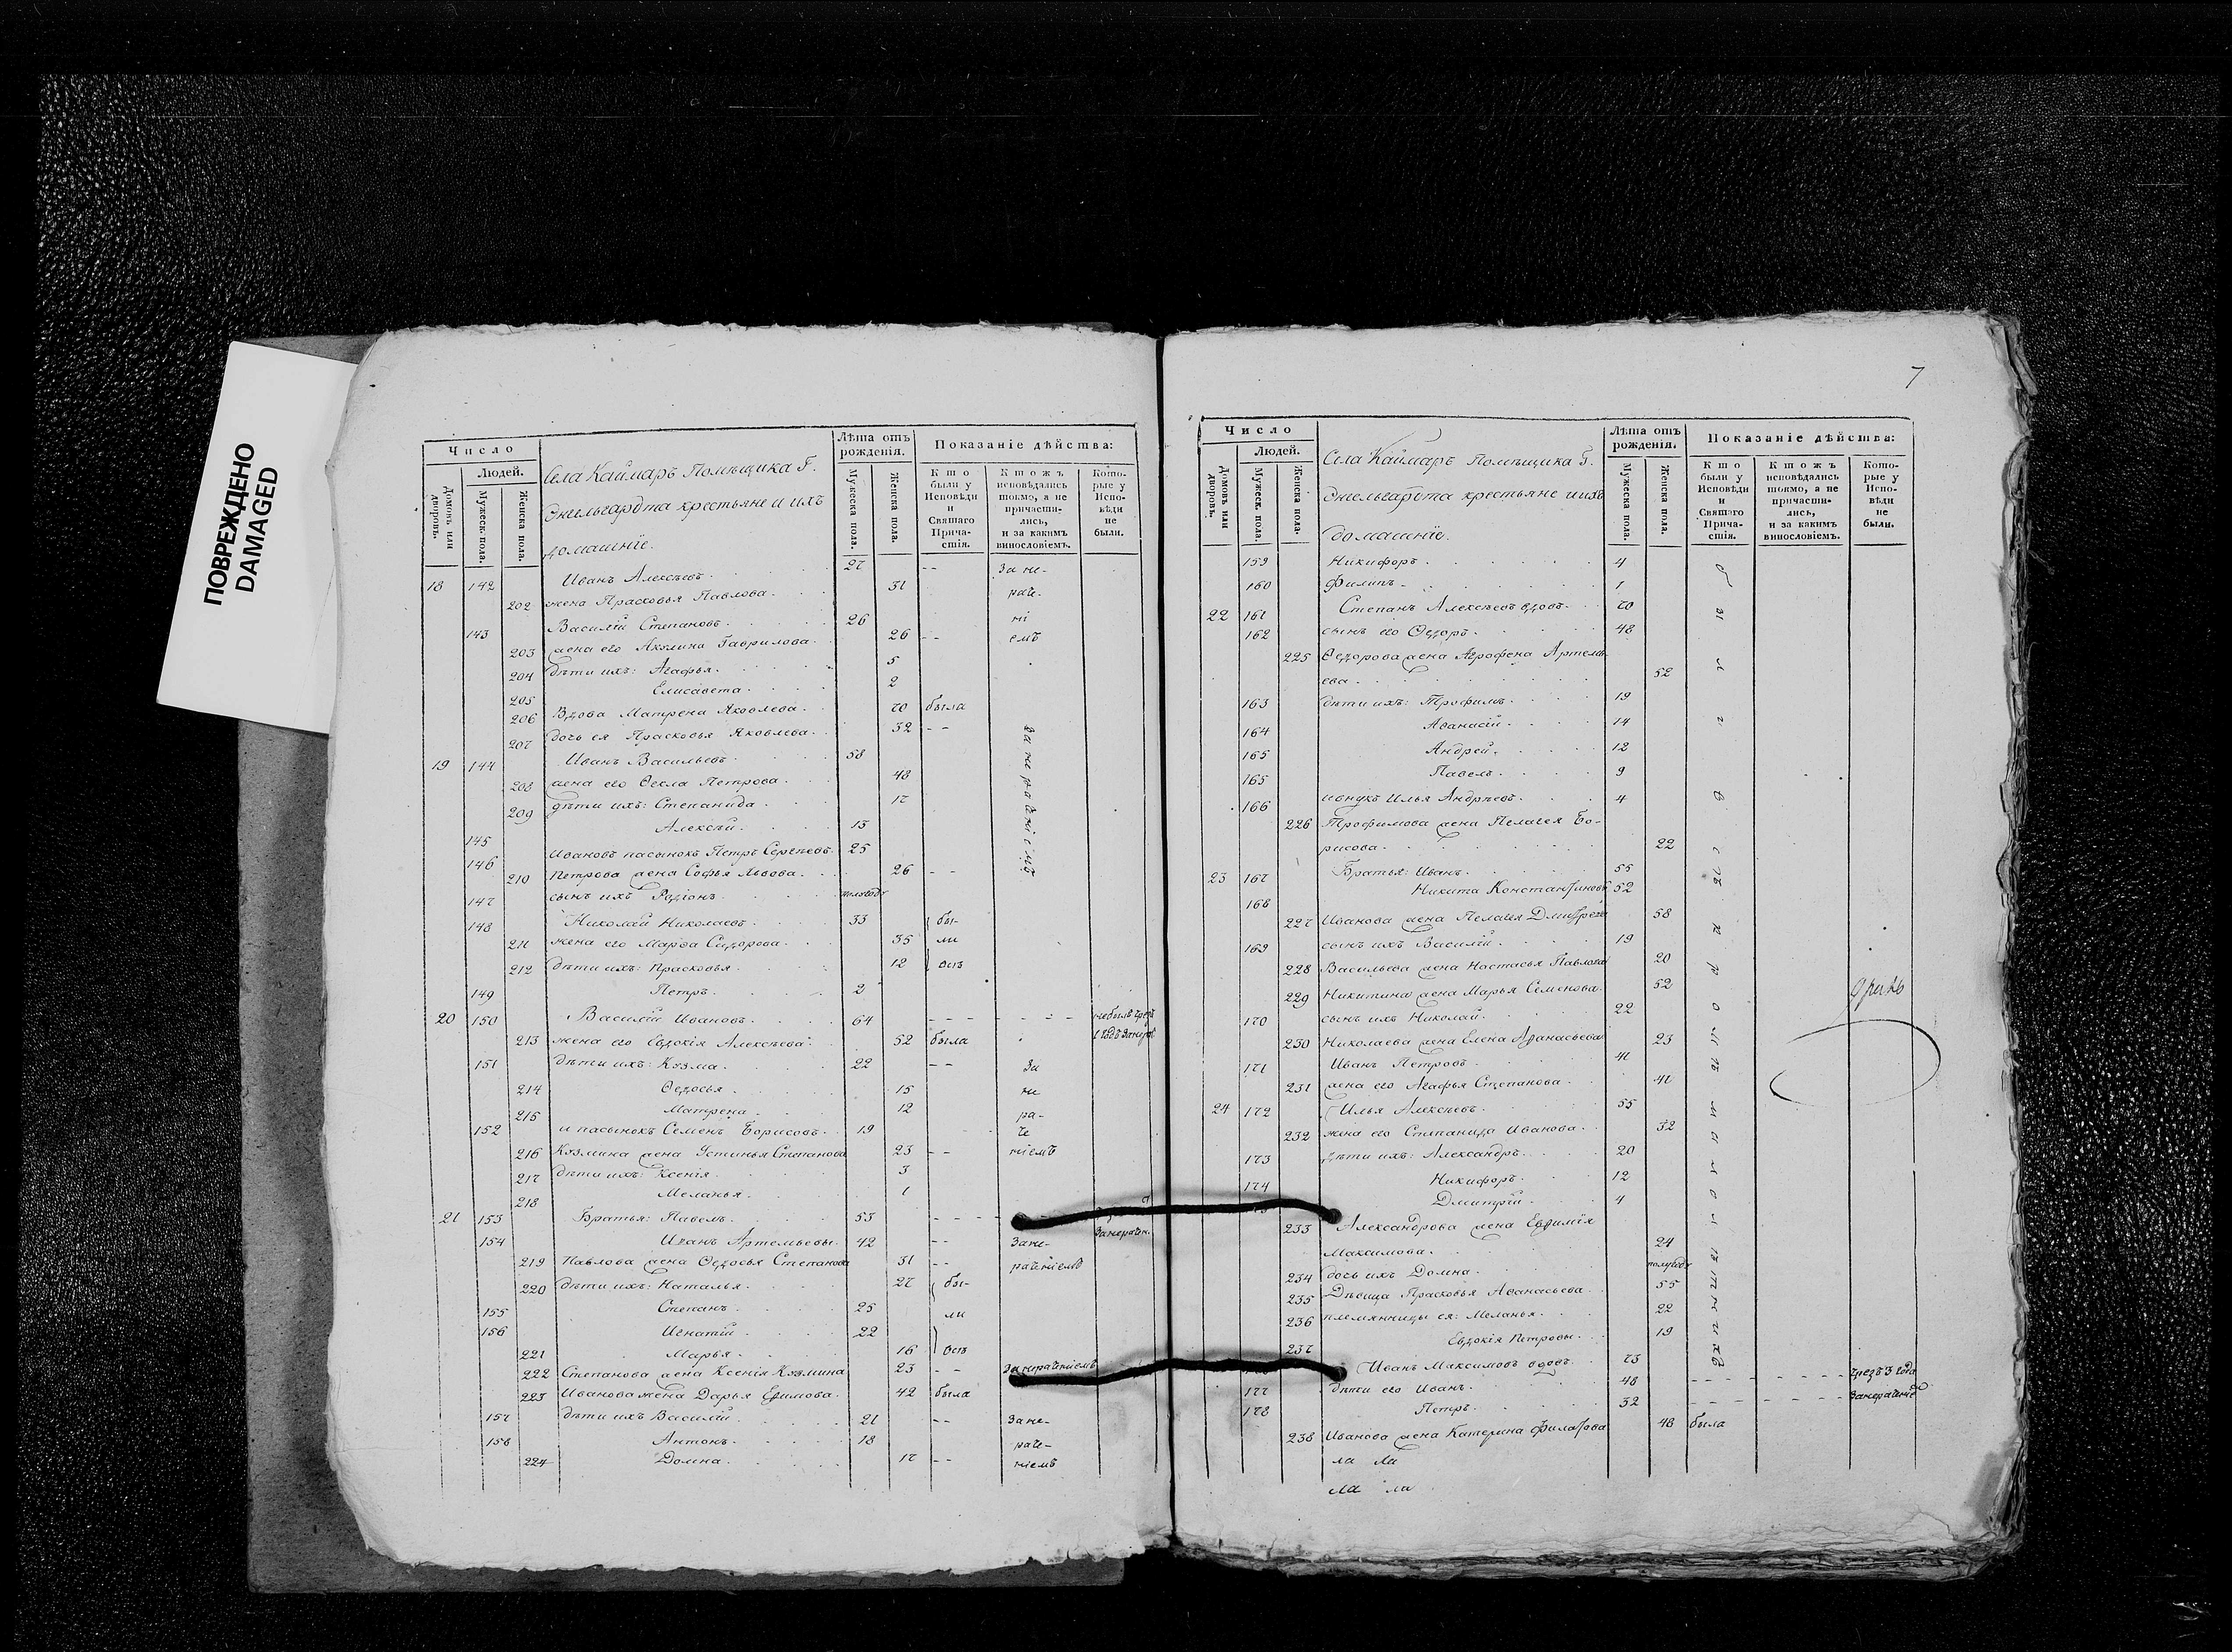 ПОВРЕЖДЕНО
DAMAGED
Число
Людей.
Домовъ или дворовъ.
Мужеск. пола.
Женска пола.
Села Каймаръ Помѣщика Г.
Энгельгардта крестьяне и ихъ
домашніе.
Лѣта отъ рожденія.
Мужеска пола.
Женска пола.
Показаніе дѣйства:
Кто были у Исповѣди и Святаго Причастія.
Ктожъ исповѣдались токмо, а не причастились, и за какимъ винословіемъ.
Которые у Исповѣди не были.
18 142 Иванъ Алексѣевъ 27 -- За не-
202 жена Прасковья Павлова 31 раче-
143 Василій Степановъ 26 ні
203 жена его Акулина Гаврилова 26 -- емъ
204 дѣти ихъ: Агафья 5
205 Елисавета 2
206 Вдова Матрена Яковлева 70 была
207 дочь ея Прасковья Яковлева 32 -- За нераченіемъ
19 144 Иванъ Васильевъ 58
208 жена его Ѳекла Петрова 48
209 дѣти ихъ: Степанида 17
145 Алексѣй 13
146 Ивановъ пасынокъ Петръ Сергѣевъ 25
210 Петрова жена Софья Львова 26 --
147 сынъ ихъ Родіонъ полугода
148 Николай Николаевъ 33 бы-
211 жена его Марѳа Сидорова 35 ли
212 дѣти ихъ: Прасковья 12 всѣ
149 Петръ 2
20 150 Василій Ивановъ 64 --- небылъ чрезъ
213 жена его Евдокія Алексѣева 52 была
151 дѣти ихъ: Козма 22 -- За
214 Ѳедосья 15 не
215 Матрена 12 ра-
152 и пасынокъ Семенъ Борисовъ 19 че
216 Козмина жена Устинья Степанова 23 -- ніемъ
217 дѣти ихъ: Ксенія 3
218 Меланья 1
21 153 Братья: Павелъ 53 ---
154 Иванъ Артемьевы 42 -- Зане-
219 Павлова жена Ѳедосья Степанова 31 -- раченіемъ
220 дѣти ихъ: Наталья 27 бы-
155 Степанъ 25 ли
156 Игнатій 22
221 Марья 16 всѣ
222 Степанова жена Ксенія Козмина 23 -- Занераченіемъ
223 Иванова жена Дарья Ефимова 42 была
157 дѣти ихъ Василій 21 -- Зане-
158 Антонъ 18 раче-
224 Домна 17 -- ніемъ
7
Число
Людей.
Домовъ или дворовъ.
Мужеск. пола.
Женска пола.
Села Каймаръ Помѣщика Г.
Энгельгардта крестьяне и ихъ
домашніе.
Лѣта отъ рожденія.
Мужеска пола.
Женска пола.
Показаніе дѣйства:
Кто были у Исповѣди и Святаго Причастія.
Ктожъ исповѣдались токмо, а не причастились, и за какимъ винословіемъ.
Которые у Исповѣди не были.
159 Никифоръ 4
160 Филипъ 1
22 161 Степанъ Алексѣевъ вдовъ 70
162 сынъ его Ѳедоръ 48
225 Ѳедорова жена Аграфена Артемь-
ева 52
163 дѣти ихъ: Трофимъ 19
164 Аѳанасій 14
165 Андрей 12
165 Павелъ 9
166 и внукъ Илья Андрѣевъ 4
226 Трофимова жена Пелагея Бо-
рисова 22
23 167 Братья: Иванъ 55
168 Никита Константиновы 52
227 Иванова жена Пелагея Дмитрева 58
169 сынъ ихъ Василій 19
228 Васильева жена Настасья Павлова 20
229 Никитина жена Марья Семенова 52
170 сынъ ихъ Николай 22
230 Николаева жена Елена Афанасьева 23
171 Иванъ Петровъ 41
231 жена его Агафья Степанова 41
24 172 Илья Алексѣевъ 55
232 жена его Степанида Иванова 32
173 дѣти ихъ: Александръ 20
174 Никифоръ 12
Дмитрій 4
233 Александрова жена Евфимія
Максимова 24
234 дочь ихъ Домна полугода
235 Дѣвица Прасковья Аѳанасьева 55
236 племянницы ея: Меланья 22
237 Евдокія Петровы 19
Иванъ Максимовъ вдовъ 73
177 дѣти его Иванъ 48 --- чрезъ 3 года
178 Петръ 32 --- Занераченіе
238 Иванова жена Катерина Филатова 48 была
ла ли
ла ли